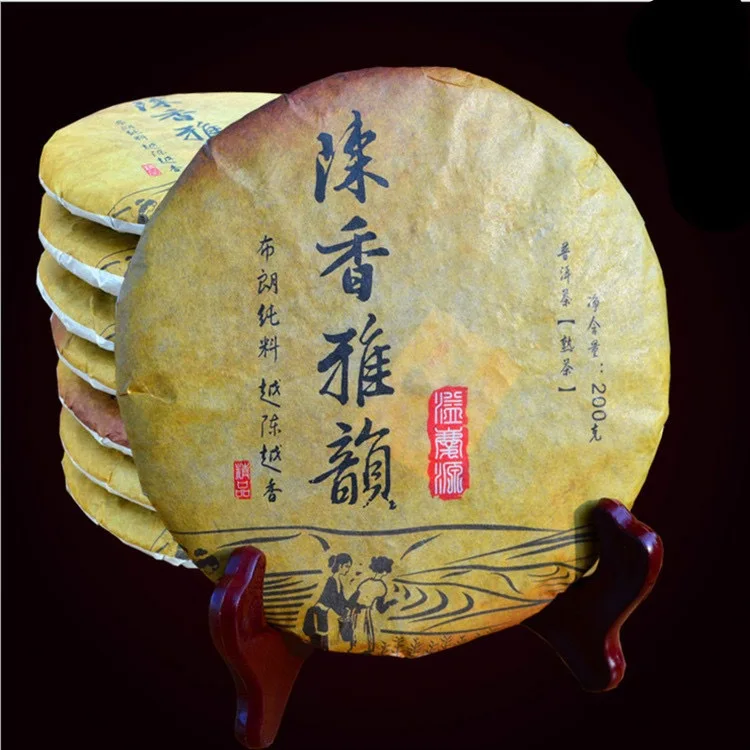 陳香雅韻
布朗纯料 越陈越香
精品
溢慶源
普洱茶【熟茶】
净含量：200克
陳香雅